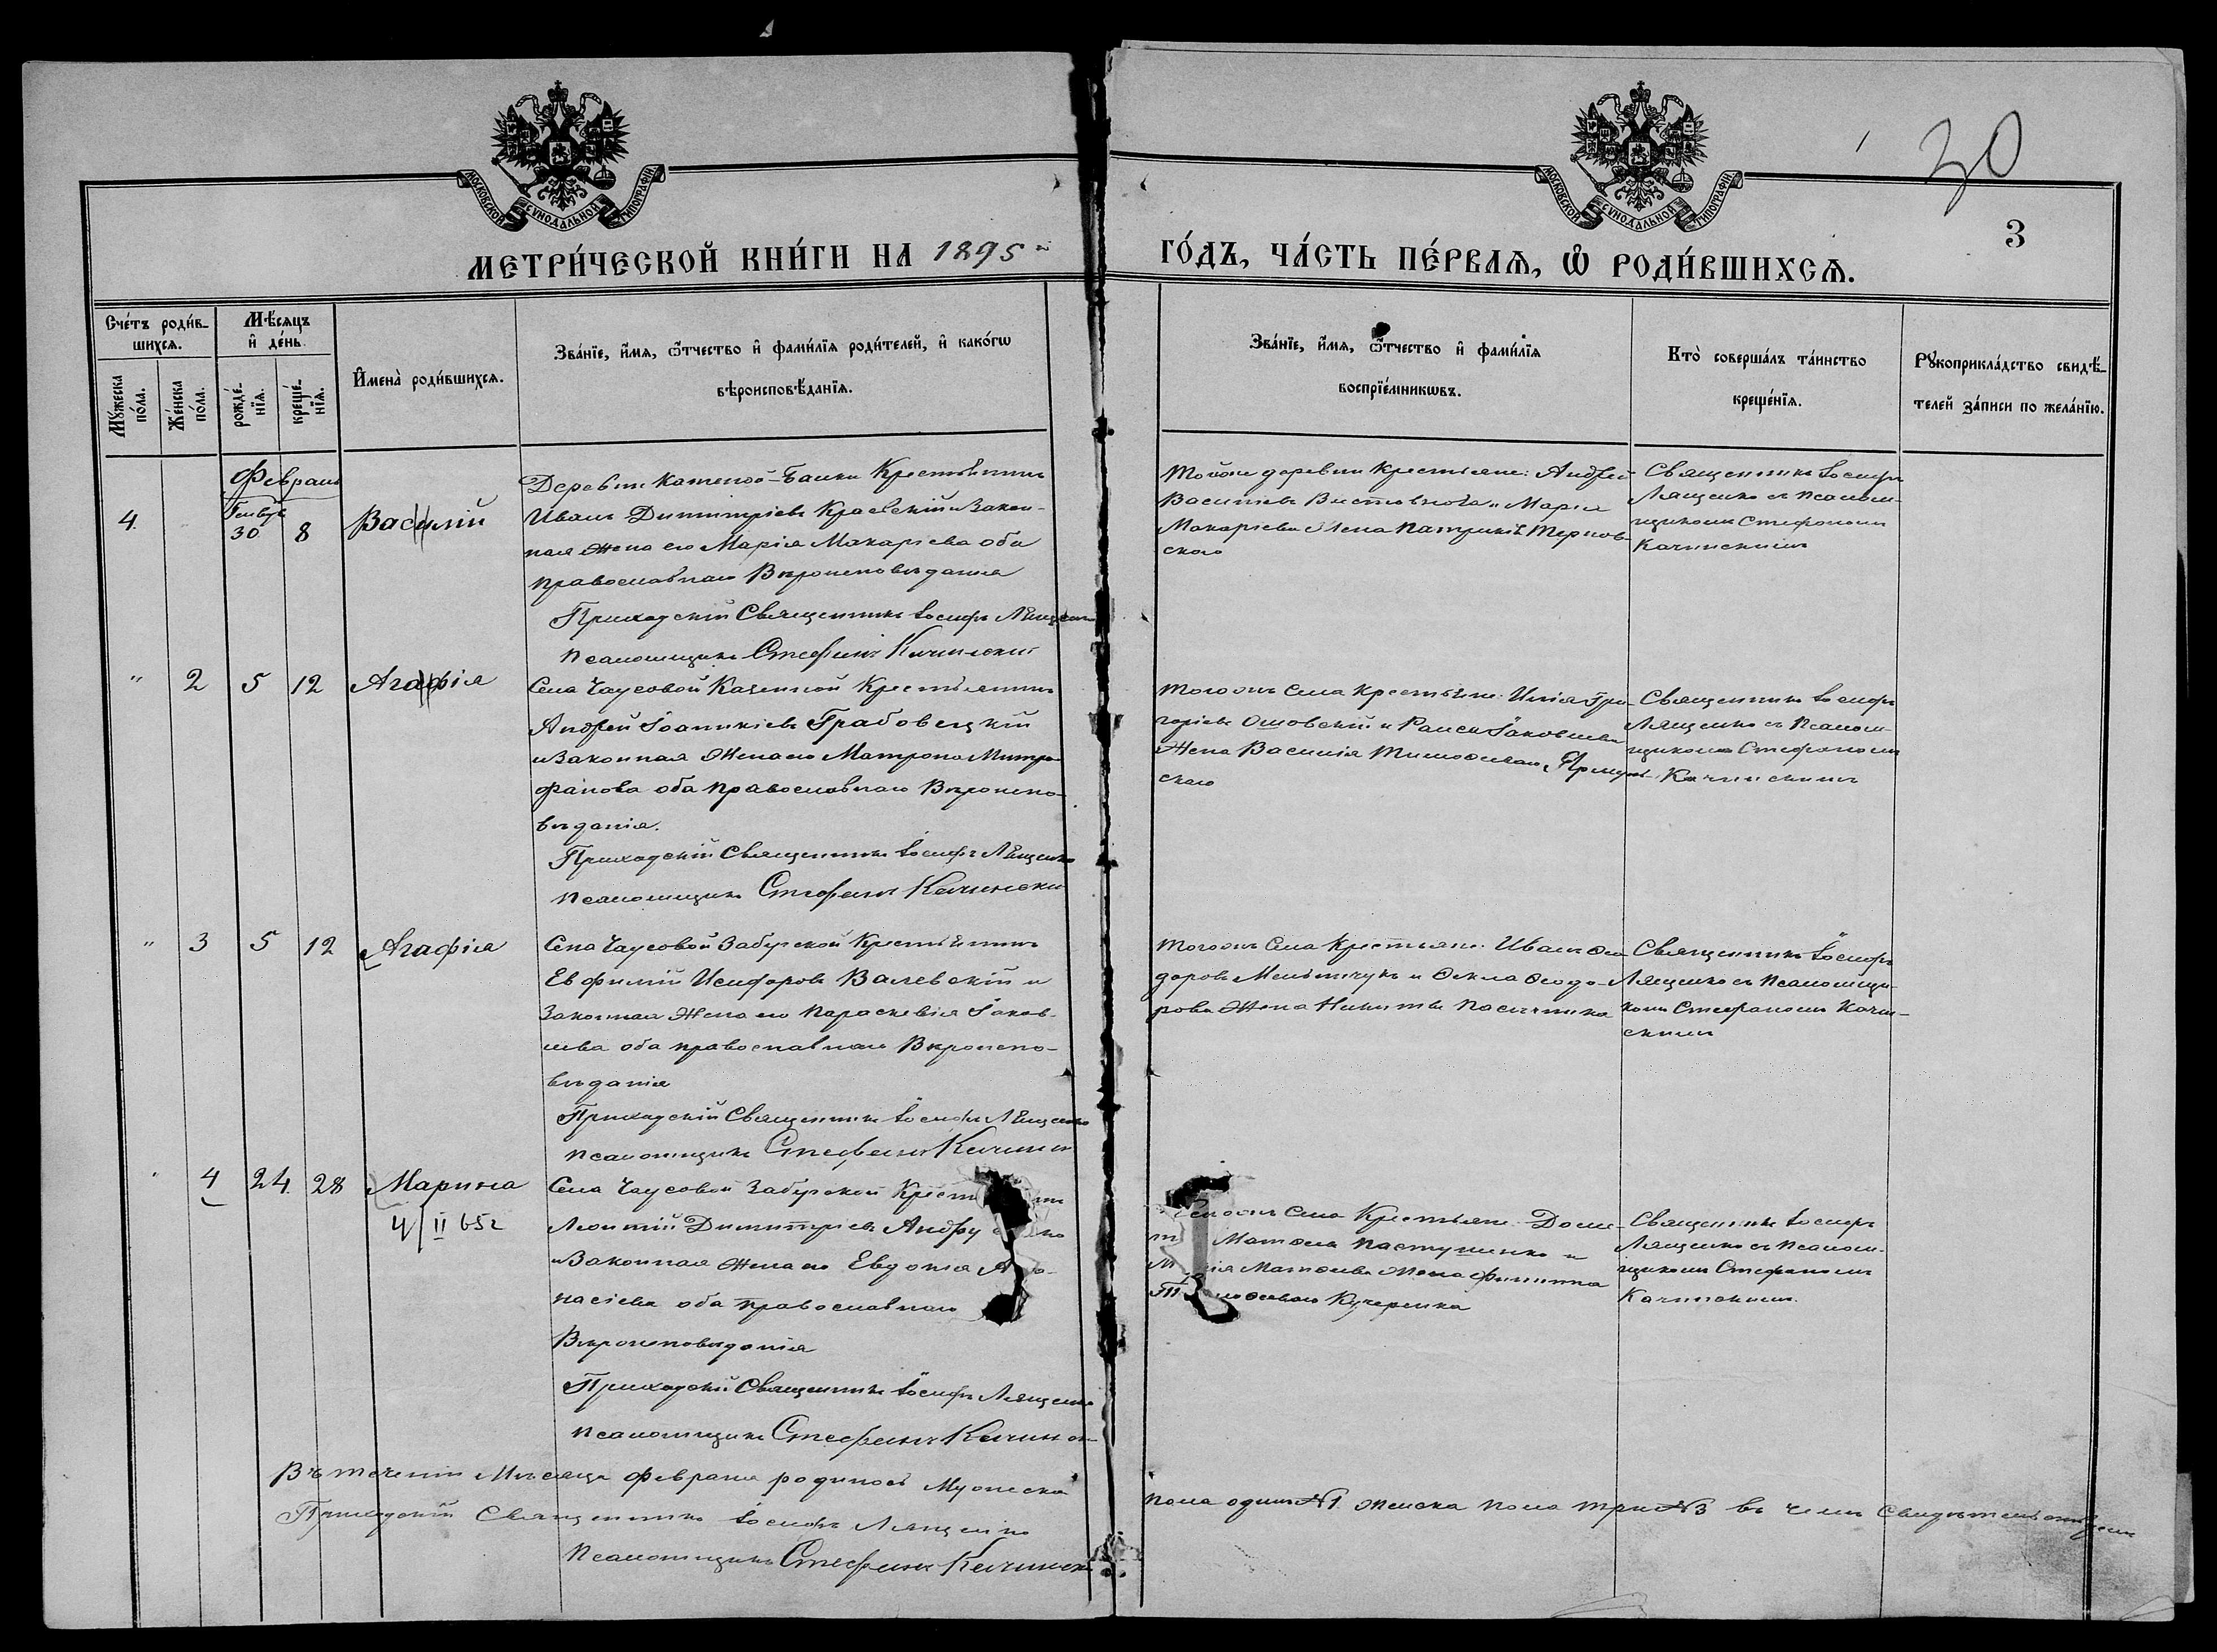 МОСКОВСКОЙ СѴНОДАЛЬНОЙ ТИПОГРАФІИ.
МОСКОВСКОЙ СѴНОДАЛЬНОЙ ТИПОГРАФІИ.
30
3
МЕТРИ́ЧЕСКОЙ КНИ́ГИ НА 1895 й ГО́ДЪ, ЧА́СТЬ ПЕ́РВАѦ, Ѡ҆ РОДИ́ВШИХСѦ.
Сче́тъ роди́в-
шихсѧ.
Мꙋ́жеска по́ла.
Же́нска по́ла.
Мѣ́сѧцъ и҆ де́нь.
рожде́-нїѧ.
креще́-нїѧ.
И҆мена̀ роди́вшихсѧ.
Зва́нїе, и҆́мѧ, ѻ҆́тчество и҆ фами́лїѧ роди́телей, и҆ како́гѡ
вѣроисповѣ́данїѧ.
Зва́нїе, и҆́мѧ, ѻ҆́тчество и҆ фами́лїѧ
воспрїе́мникѡвъ.
Кто̀ соверша́лъ та́инство
креще́нїѧ.
Рꙋкоприкла́дство свидѣ́-
телей за́писи по жела́нїю.
Февраль
4.
Генварь
30
8
Василій
Деревни Каменой-Балки Крестьянинъ
Иванъ Димитріевъ Краевскій и Закон-
ная Жена его Марія Макаріева оба
православнаго Вѣроисповѣданія
Приходскій Священникъ Іосифъ Лященко
Псаломщикъ Стефанъ Качинскій
Тойже деревни Крестьяне: Андрей
Васильевъ и Марія
Макаріева Жена Патрикія Тернов-
скаго
Священникъ Іосифъ
Лященко съ Псалом-
щикомъ Стефаномъ
Качинскимъ
" 2 5 12 Агафія
Села Чаусовой Казенной Крестьянинъ
Андрей Іоанникіевъ Грабовецкій
и Законная Жена его Матрона Митро-
фанова оба православнаго Вѣроиспо-
вѣданія.
Приходскій Священникъ Іосифъ Лященко
Псаломщикъ Стефанъ Качинскій
Тогожъ Села Крестьяне: Илія Гри-
горіевъ и Раиса Іаковлева
Жена Василія Тимоѳеева
скаго
Священникъ Іосифъ
Лященко съ Псалом-
щикомъ Стефаномъ
Качинскимъ
" 3 5 12 Агафія
Села Чаусовой Забугской Крестьянинъ
Евфимій Исидоровъ Валевскій и
Законная Жена его Параскевія Іаков-
лева оба православнаго Вѣроиспо-
вѣданія
Приходскій Священникъ Іосифъ Лященко
Псаломщикъ Стефанъ Качинск
Тогожъ Села Крестьяне: Иванъ Ѳео-
доровъ Мельничукъ и Ѳекла Ѳеодо-
рова Жена Никиты Пасечника
Священникъ Іосифъ
Лященко съ Псаломщи-
комъ Стефаномъ Качин-
скимъ
" 4 24 28 Марина
4/II 65г
Села Чаусовой Забугской Крест
Леонтій Димитріевъ Андру
и Законная Жена его Евдокія
насіева оба православнаго
Вѣроисповѣданія
Приходскій Священникъ Іосифъ Лященко
Псаломщикъ Стефанъ Качинск
Села Крестьяне:
Матѳеевъ Пастушенко и
Матѳеева Жена Филиппа
Кучеренка
Священникъ Іосифъ
Лященко съ Псалом-
щикомъ Стефаномъ
Качинскимъ.
Въ теченіи Мѣсяца Февраля родилось Мужеска
Пола одинъ №1. Женска Пола три №3 въ чемъ Свидѣтельствуемъ
Приходскій Священникъ Іосифъ Лященко
Псаломщикъ Стефанъ Качинскі